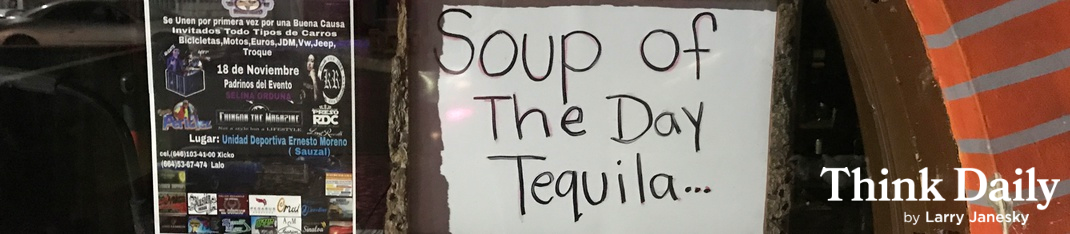 Se Unen por primera vez por una Buena Causa
Invitados Todo Tipos de Carros
Bicicletas,Motos,Euros,JDM,Vw,Jeep,
Troque
18 de Noviembre
Padrinos del Evento
SELINA ORDUÑA
RR
THINGON THE MAGAZINE
Not a style but a LIFESTYLE
RDC
Lugar: Unidad Deportiva Ernesto Moreno
( Sauzal)
cel.(646)103-41-00 Xicko
(664)53-67-474 Lalo
Sinaloa
Soup of
The Day
Tequila...
Think Daily
by Larry Janesky